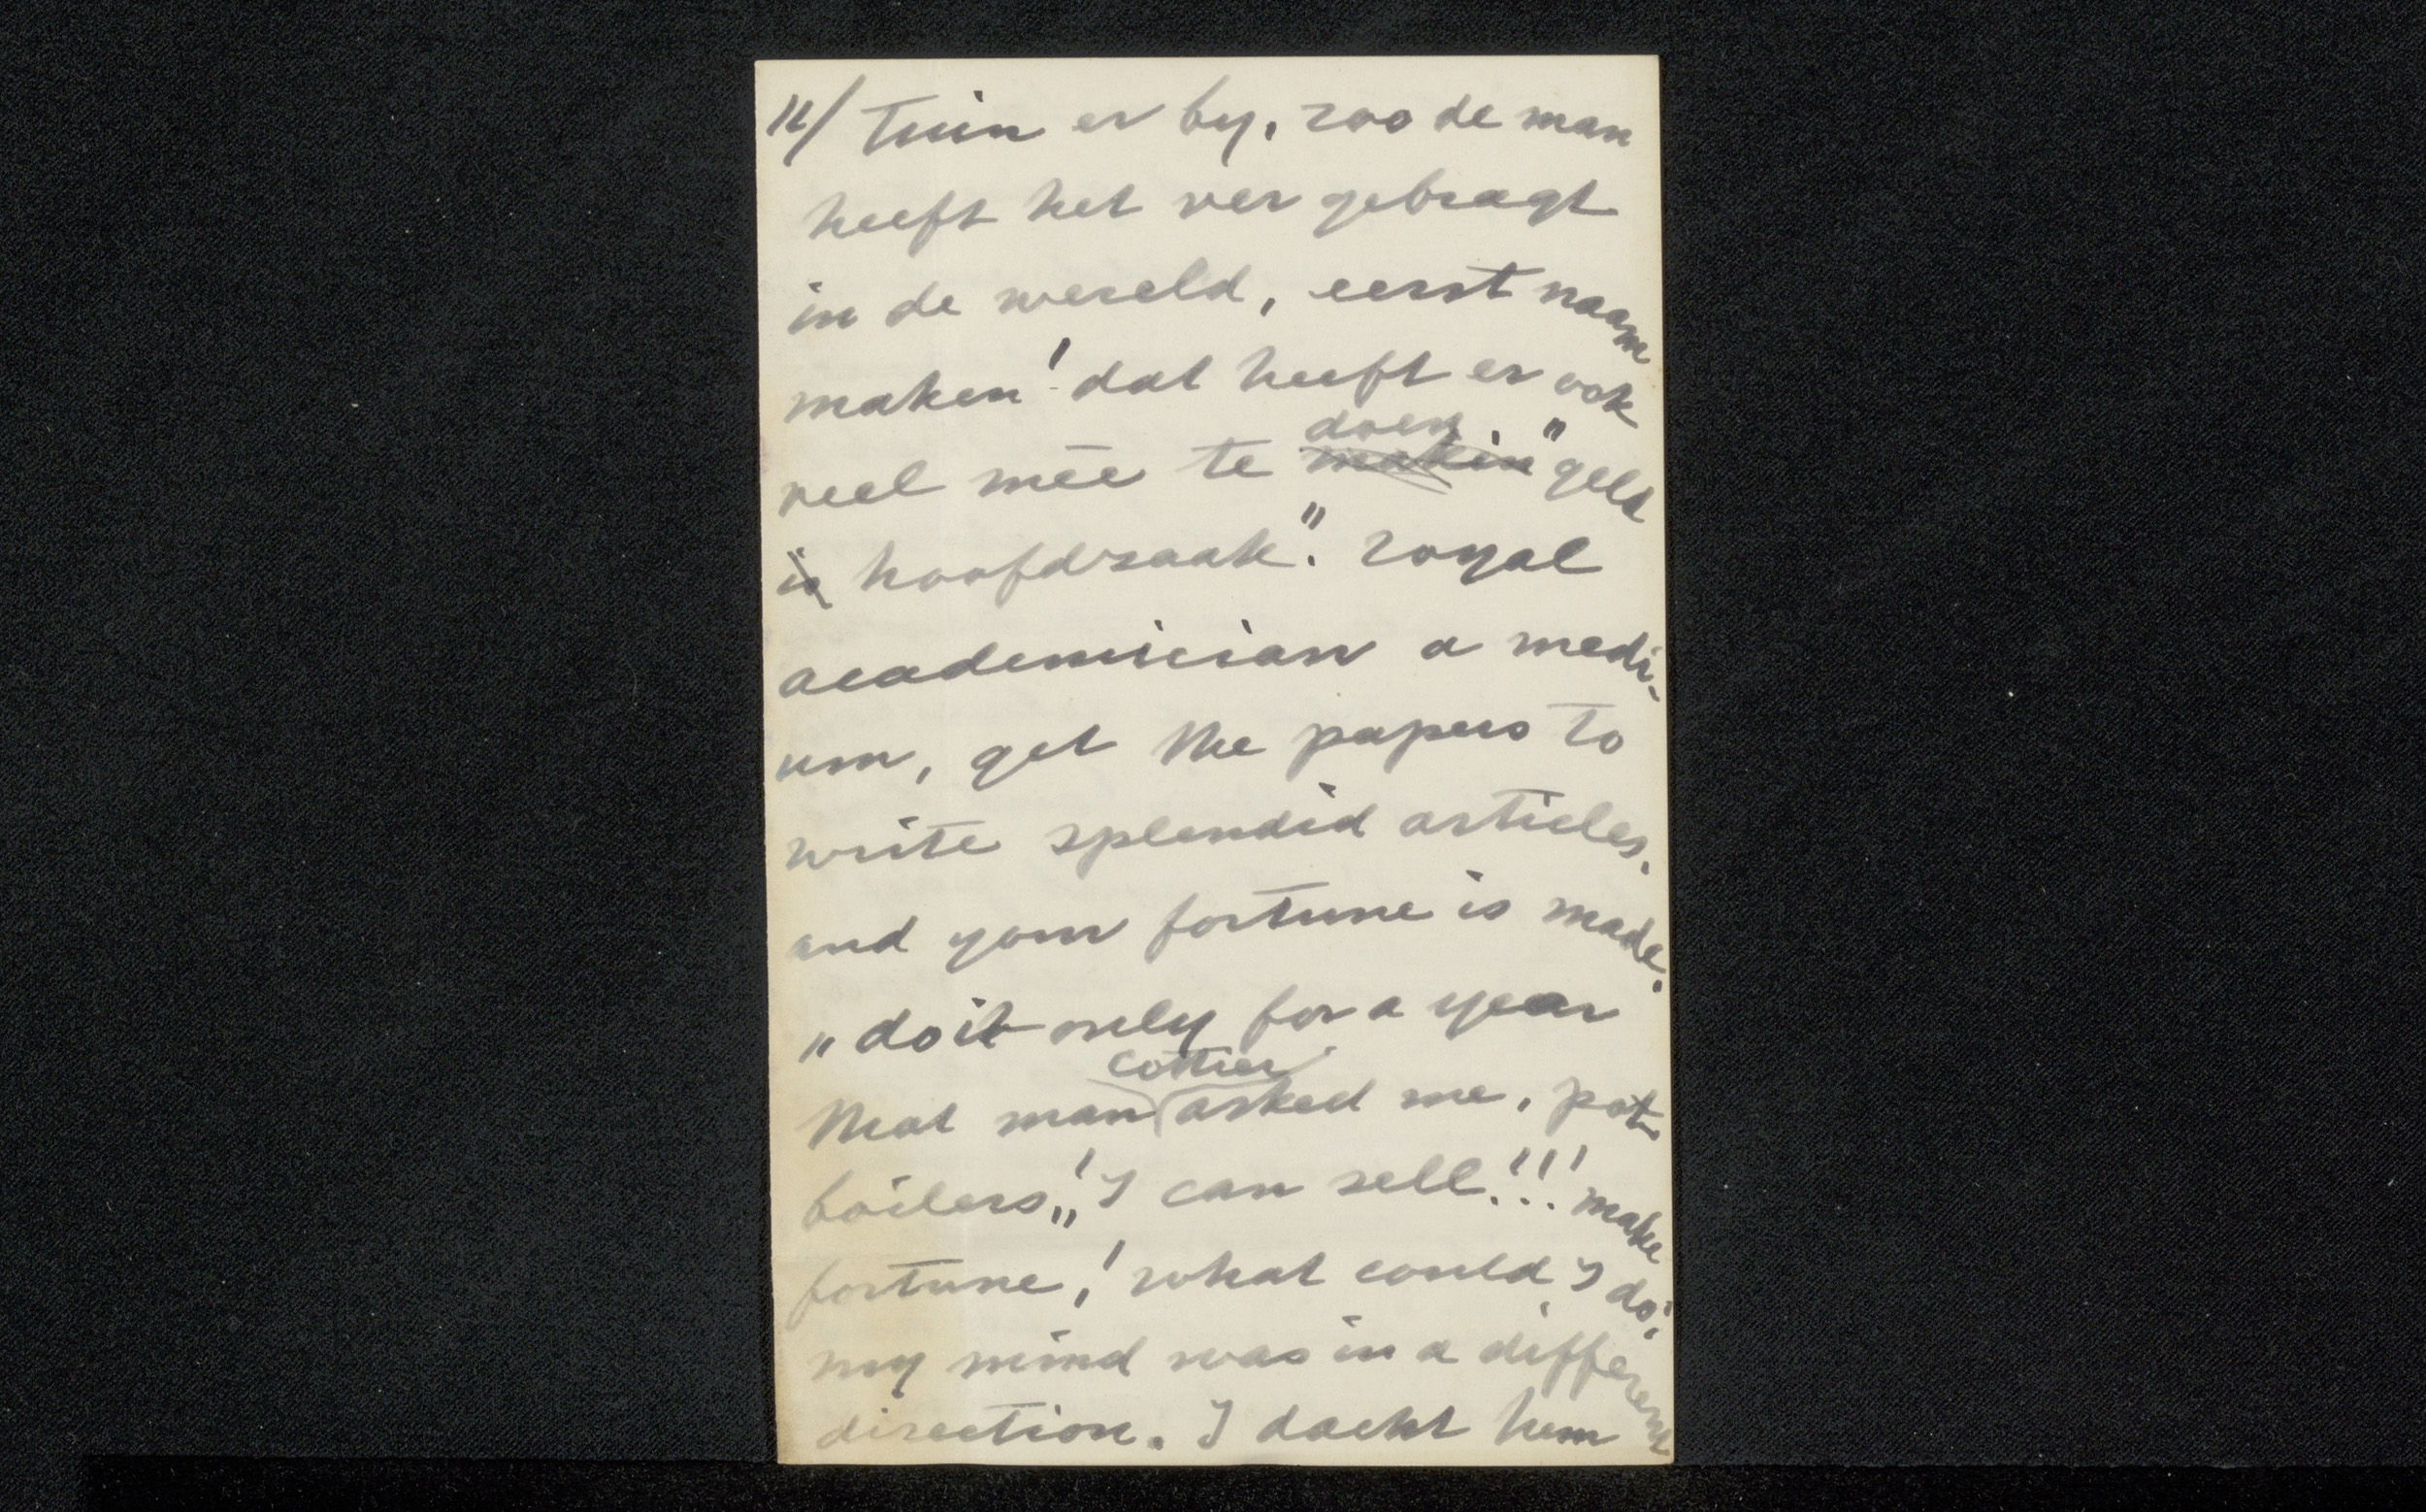 11/ Tuin er by, zoo de man
heeft het ver gebragt
in de wereld, eerst naam
maken! dat heeft er ook
veel mēe te doen "geld
is hoofdzaak". royal
academician a medi-
um, get the papers to
write splendid articles,
and your fortune is made.
„do it only for a year
that man cottier asked me, pot
boilers„! I can sell!!! make
fortune,! what could I do,
my mind was in a different
direction. I dacht hem